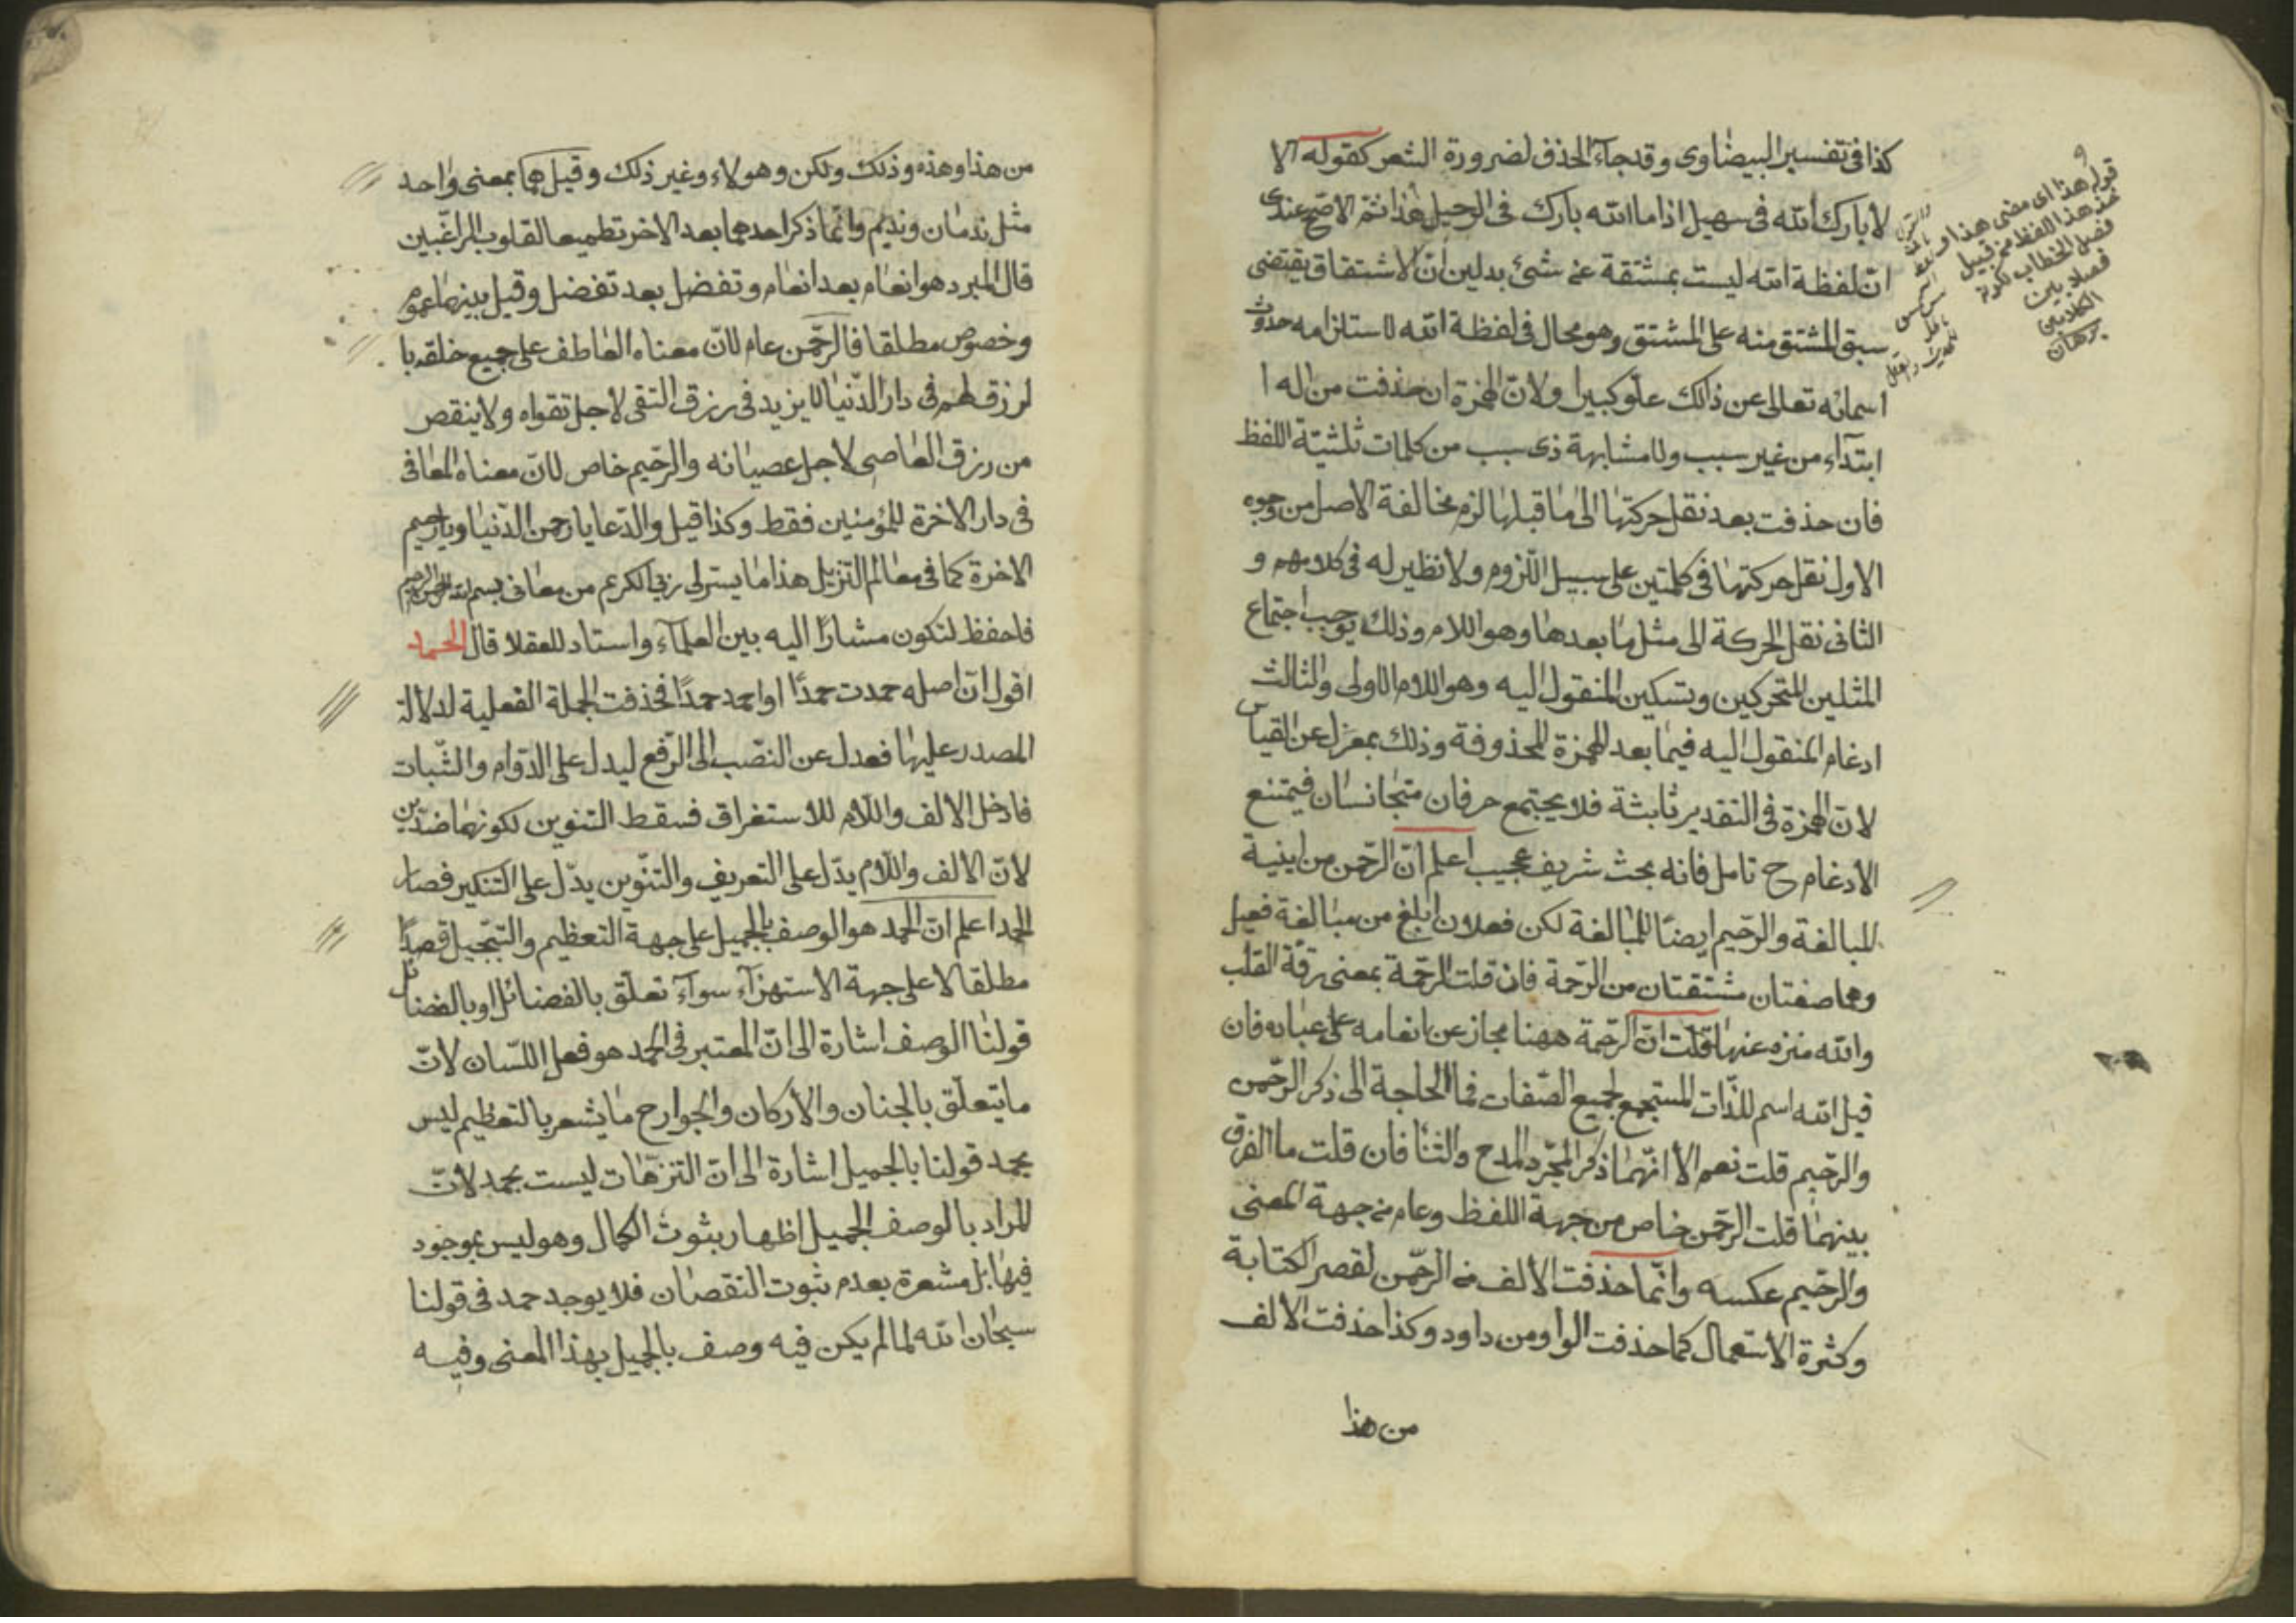 كذا فى تفسير البيضاوى وقد جاء الحذف لضرورة الشعر كقوله الا
لا بارك الله فى سهيل اذا ما الله بارك فى الرجيل هذا ثم الاصح عندى
ان لفظة الله ليست بمشتقة عن شئ بدليل ان الاشتقاق يقتضى
سبق المشتق منه على المشتق وهو محال فى لفظة الله لاستلزامه حدوث
اسمائه تعالى عن ذالك علو كبيرا ولان الهمزة ان حذفت من اله ا
ابتداء من غير سبب ولا مشابهة ذى سبب من كلمات ثلثية اللفظ
فان حذفت بعد نقل حركتها الى ما قبلها لزم مخالفة الاصل من وجوه
الاول نقل حركتها فى كلمتين على سبيل اللزوم ولا نظير له فى كلامهم و
الثانى نقل الحركة الى مثل ما بعدها وهو اللام وذلك يوجب اجتماع
المثلين المتحركين وتسكين المنقول اليه وهو اللام الاولى والثالث
ادغام المنقول اليه فيما بعد الهمزة المحذوفة وذلك بمعزل عن القياس
لان الهمزة فى التقدير ثابتة فلا يجتمع حرفان متجانسان فيمتنع
الادغام ح تامل فانه بحث شريف عجيب اعلم ان الرحمن من ابنية
المبالغة والرحيم ايضا للمبالغة لكن فعلان ابلغ من مبالغة فعيل
وهما صفتان مشتقتان من الرحمة فان قلت الرحمة بمعنى رقة القلب
والله منزه عنها قلت ان الرحمة ههنا مجاز عن انعامه على عباده فان
قيل الله اسم للذات المستجمع لجميع الصفات فما الحاجة الى ذكر الرحمن
والرحيم قلت نعم الا انهما ذكر المجرد المدح والثنا فان قلت ما الفرق
بينهما قلت الرحمن خاص من جهة اللفظ وعام من جهة المعنى
والرحيم عكسه وانما حذفت الالف من الرحمن لقصر الكتابة
وكثرة الاستعمال كما حذفت الواو من داود وكذا حذفت الالف
من هذا
قوله هذا اى مضى هذا
هذا اللفظ من قبيل
فصل الخطاب لكونه
فصلا بين
الكلامين
برهان
من هذا وهذه وذلك ولكن وهولاء وغير ذلك وقيل هما بمعنى واحد
مثل ندمان ونديم وانما ذكر احدهما بعد الاخر تطميعا لقلوب الراغبين
قال المبرد هو انعام بعد انعام وتفضل بعد تفضل وقيل بينهما عموم
وخصوص مطلقا فالرحمن عام لان معناه العاطف على جميع خلقه با
لرزق لهم فى دار الدنيا لا يزيد فى رزق التقى لاجل تقواه ولا ينقص
من رزق العاصى لاجل عصيانه والرحيم خاص لان معناه المعافى
فى دار الاخرة للمؤمنين فقط وكذا قيل والدعا يا رحمن الدنيا ويا رحيم
الاخرة كما فى معالم التنزيل هذا ما يسر لى ربى الكريم من معانى بسم الله الرحمن الرحيم
فاحفظ لتكون مشارا اليه بين العلماء واستاد للعقلا قال الحمد
اقول ان اصله حمدت حمدا او احمد حمدا فحذفت الجملة الفعلية لدلالة
المصدر عليها فعدل عن النصب الى الرفع ليدل على الدوام والثبات
فادخل الالف واللام للاستغراق فسقط التنوين لكونهما ضدين
لان الالف واللام يدل على التعريف والتنوين يدل على التنكير فصار
الحمد اعلم ان الحمد هو الوصف بالجميل على جهة التعظيم والتبجيل قصدا
مطلقا لا على جهة الاستهزاء سواء تعلق بالفضائل او بالفضائل
قولنا الوصف اشارة الى ان المعتبر فى الحمد هو فعل اللسان لان
ما يتعلق بالجنان والاركان والجوارح ما يشعر بالتعظيم ليس
بحمد قولنا بالجميل اشارة الى ان التنزهات ليست بحمد لان
المراد بالوصف الجميل اظهار بثوت الكمال وهو ليس بموجود
فيها بل مشعرة بعدم ثبوت النقصان فلا يوجد حمد فى قولنا
سبحان الله لما لم يكن فيه وصف بالجميل بهذا المعنى وفيه